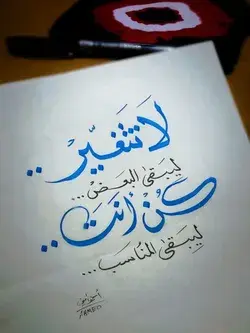 لا تتغيّر ..
ليبقى البعض ...
كُنْ أنتَ ..
ليبقى المناسب ...